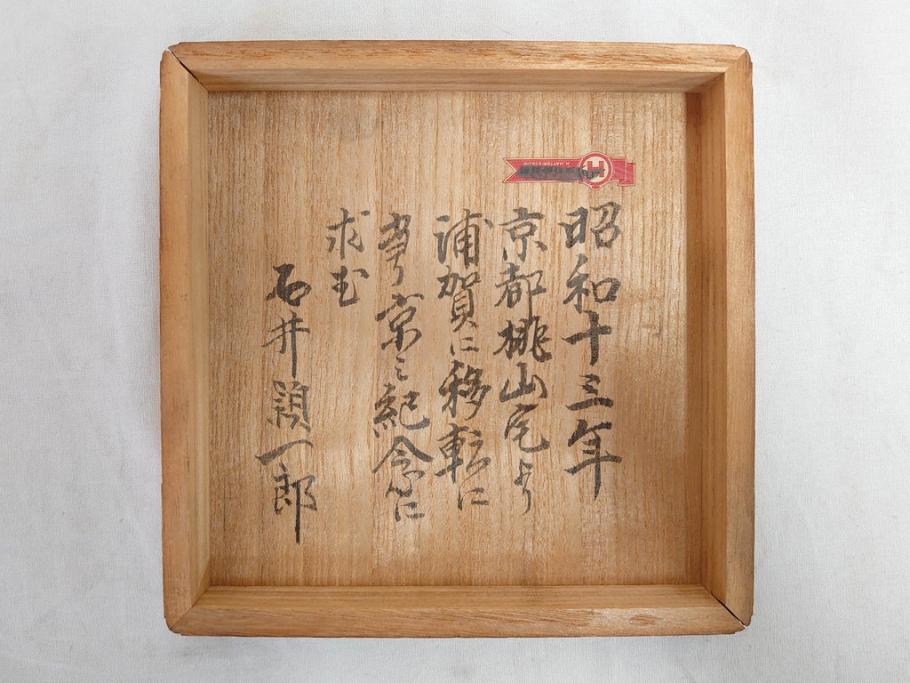 昭和十三年
京都桃山宅より
浦賀に移転に
当り京之紀念に
求む
石井穎一郎
H